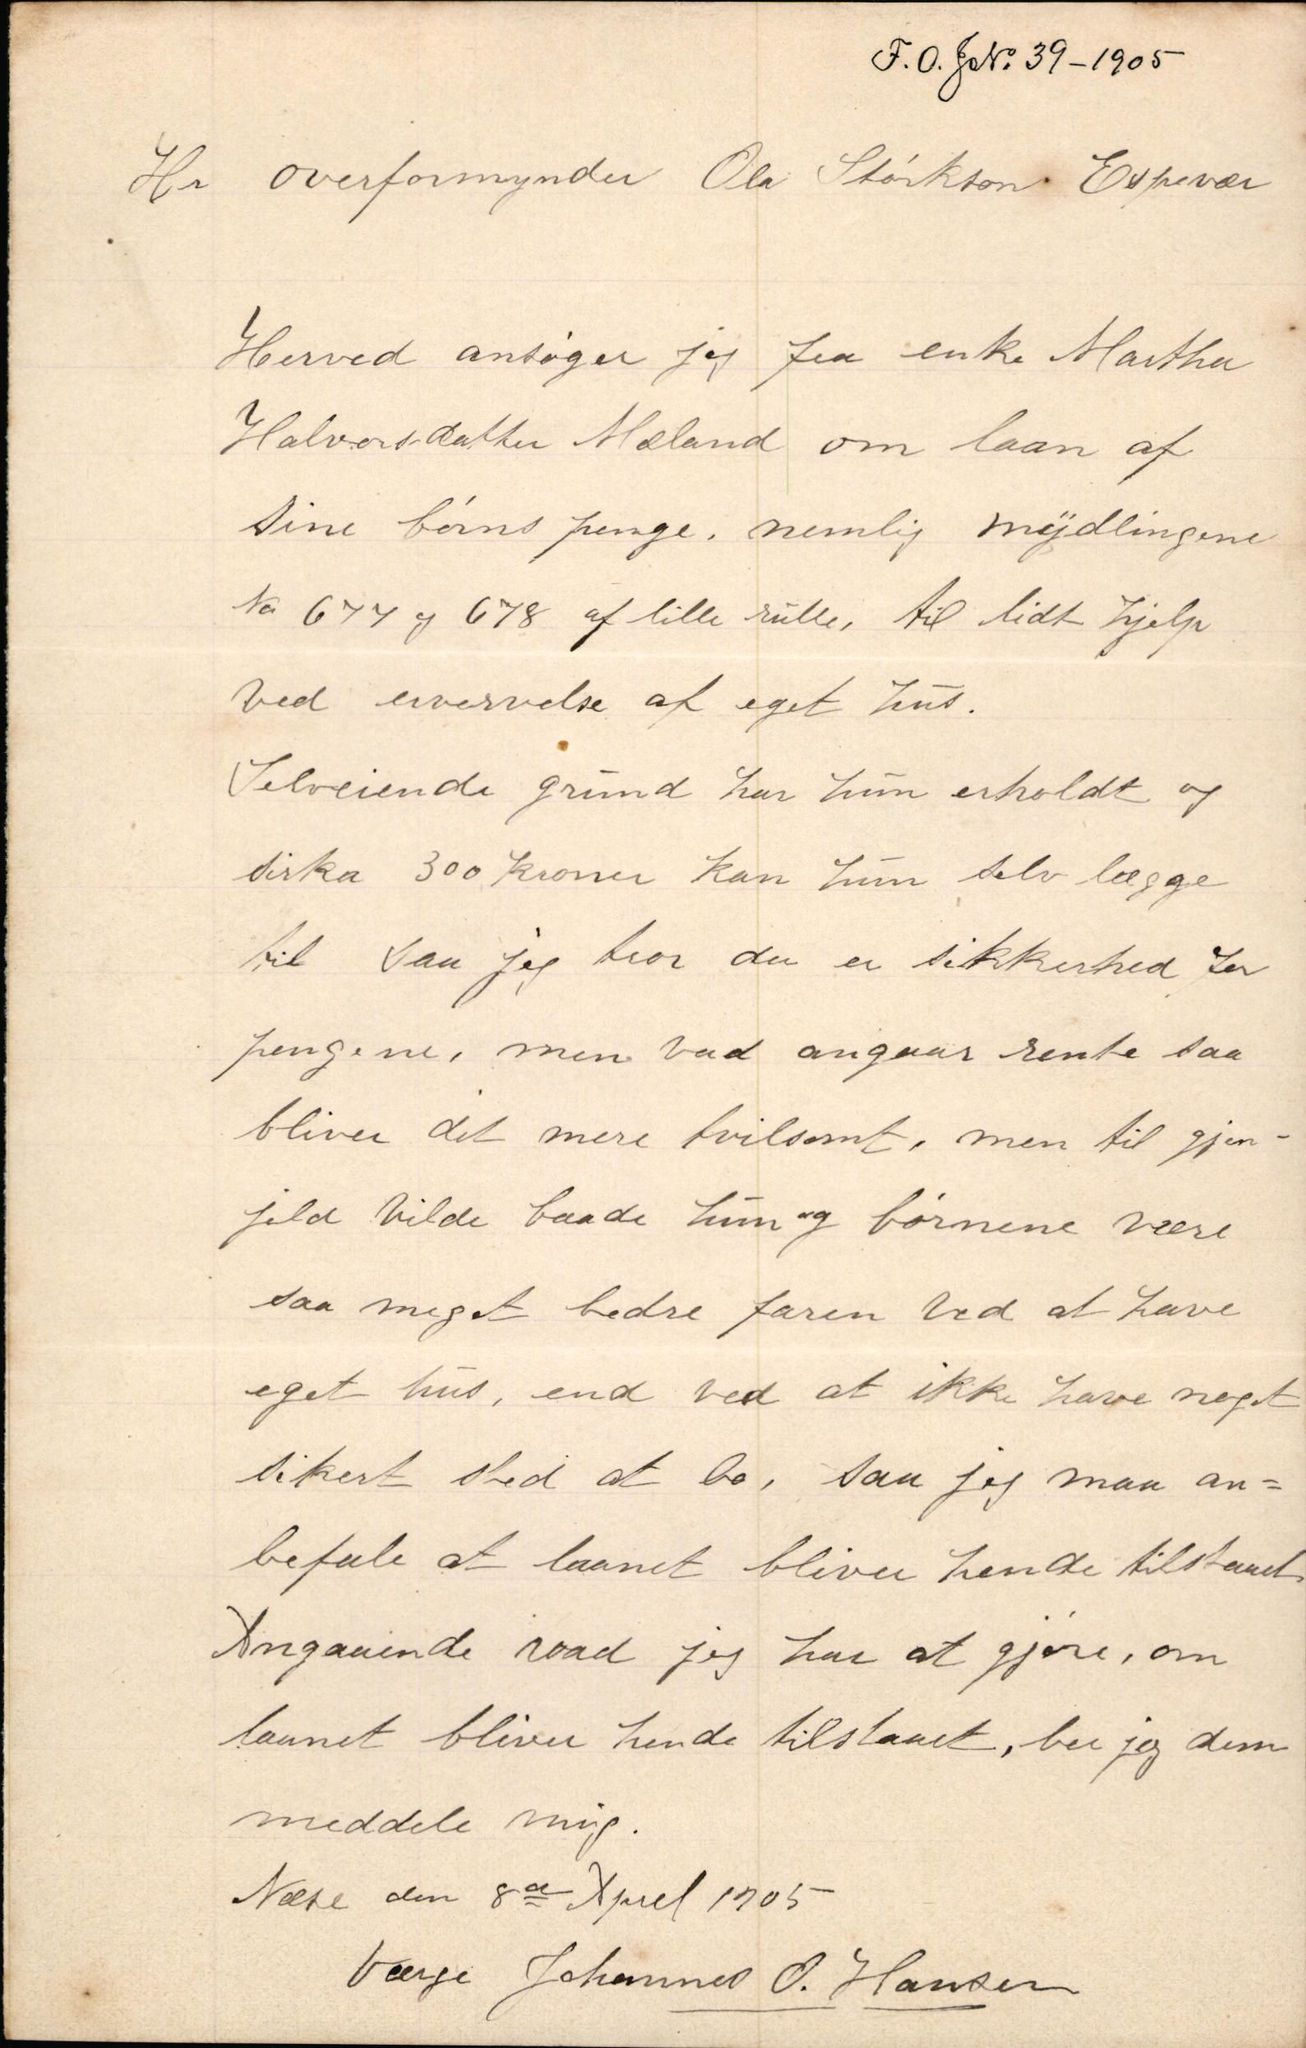 F. O. J No. 39-1905
Hr overformynder Ola Størkson Espevær
Herved ansøger jeg fra enke Martha
Halvorsdatter Mæland om laan af
sine børns penge, nemlig mÿdlingene
No 677 og 678 af lille rulle, til lidt hjelp
ved ervervelse af eget hus.
Selveiende grund har hun erholdt og
sirka 300 kroner kan hun selv lægge
til saa jeg tror der er sikkerhed for
pengene, men vad angaar rente saa
bliver det mere tvilsomt, men til gjen-
jeld vilde baade hun og børnene være
saa meget bedre faren ved at have
eget hus, end ved at ikke have noget
sikert sted at bo, saa jeg maa an=
befale at laanet bliver hende tilstaaet.
Angaaende vaad jeg har at gjøre, om
laanet bliver hende tilstaaet, ber jeg dem
meddele mig.
Næse den 8de Aprel 1905
Værge Johannes O. Hansen